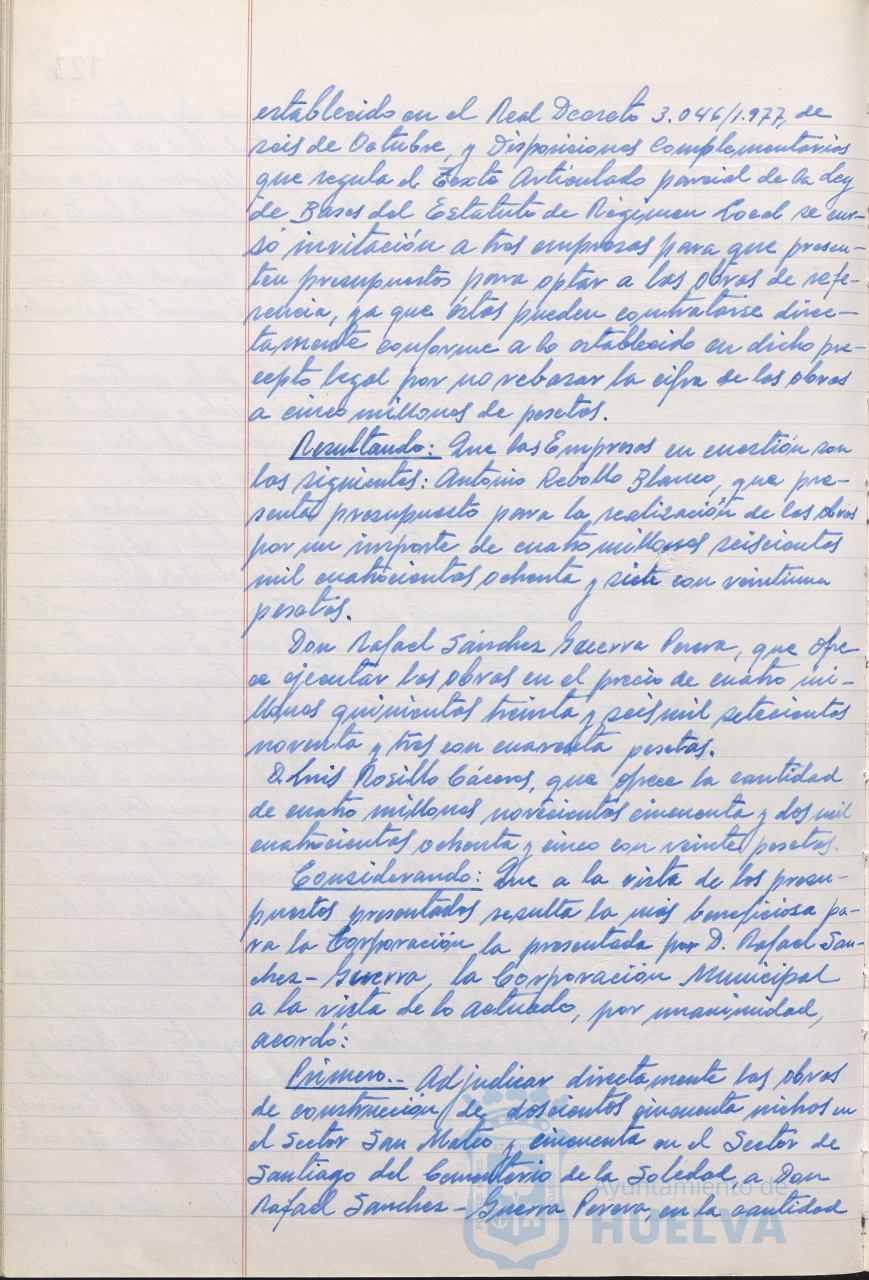 establecido en el Real Decreto 3.046/1.977, de
seis de Octubre, y Disposiciones Complementarias
que regula el Texto Articulado parcial de la Ley
de Bases del Estatuto de Régimen Local se cur-
só invitación a tres empresas para que presen-
ten presupuestos para optar a las obras de refe-
rencia, ya que éstas pueden contratarse direc-
tamente conforme a lo establecido en dicho pre-
cepto legal por no rebasar la cifra de las obras
a cinco millones de pesetas.
Resultando: Que las Empresas en cuestión son
las siguientes: Antonio Rebollo Blanco, que pre-
senta presupuesto para la realización de las obras
por un importe de cuatro millones seiscientos
mil cuatrocientas ochenta y siete con veintiuna
pesetas.
Don Rafael Sánchez Guerra Perera, que ofre
ce ejecutar las obras en el precio de cuatro mi-
llones quinientas treinta y seis mil setecientas
noventa y tres con cuarenta pesetas.
D. Luis Rosillo Cáceres, que ofrece la cantidad
de cuatro millones novecientas cincuenta y dos mil
cuatrocientas ochenta y cinco con veinte pesetas.
Considerando: Que a la vista de los presu-
puestos presentados resulta la más beneficiosa pa-
ra la Corporación la presentada por D. Rafael San-
chez-Guerra, la Corporación Municipal
a la vista de lo actuado, por unanimidad,
acordó:
Primero.- Adjudicar directamente las obras
de construcción de doscientos cincuenta nichos en
el Sector San Mateo y cincuenta en el Sector de
Santiago del Cementerio de la Soledad, a Don
Rafael Sanchez-Guerra Perera, en la cantidad
Ayuntamiento de
HUELVA